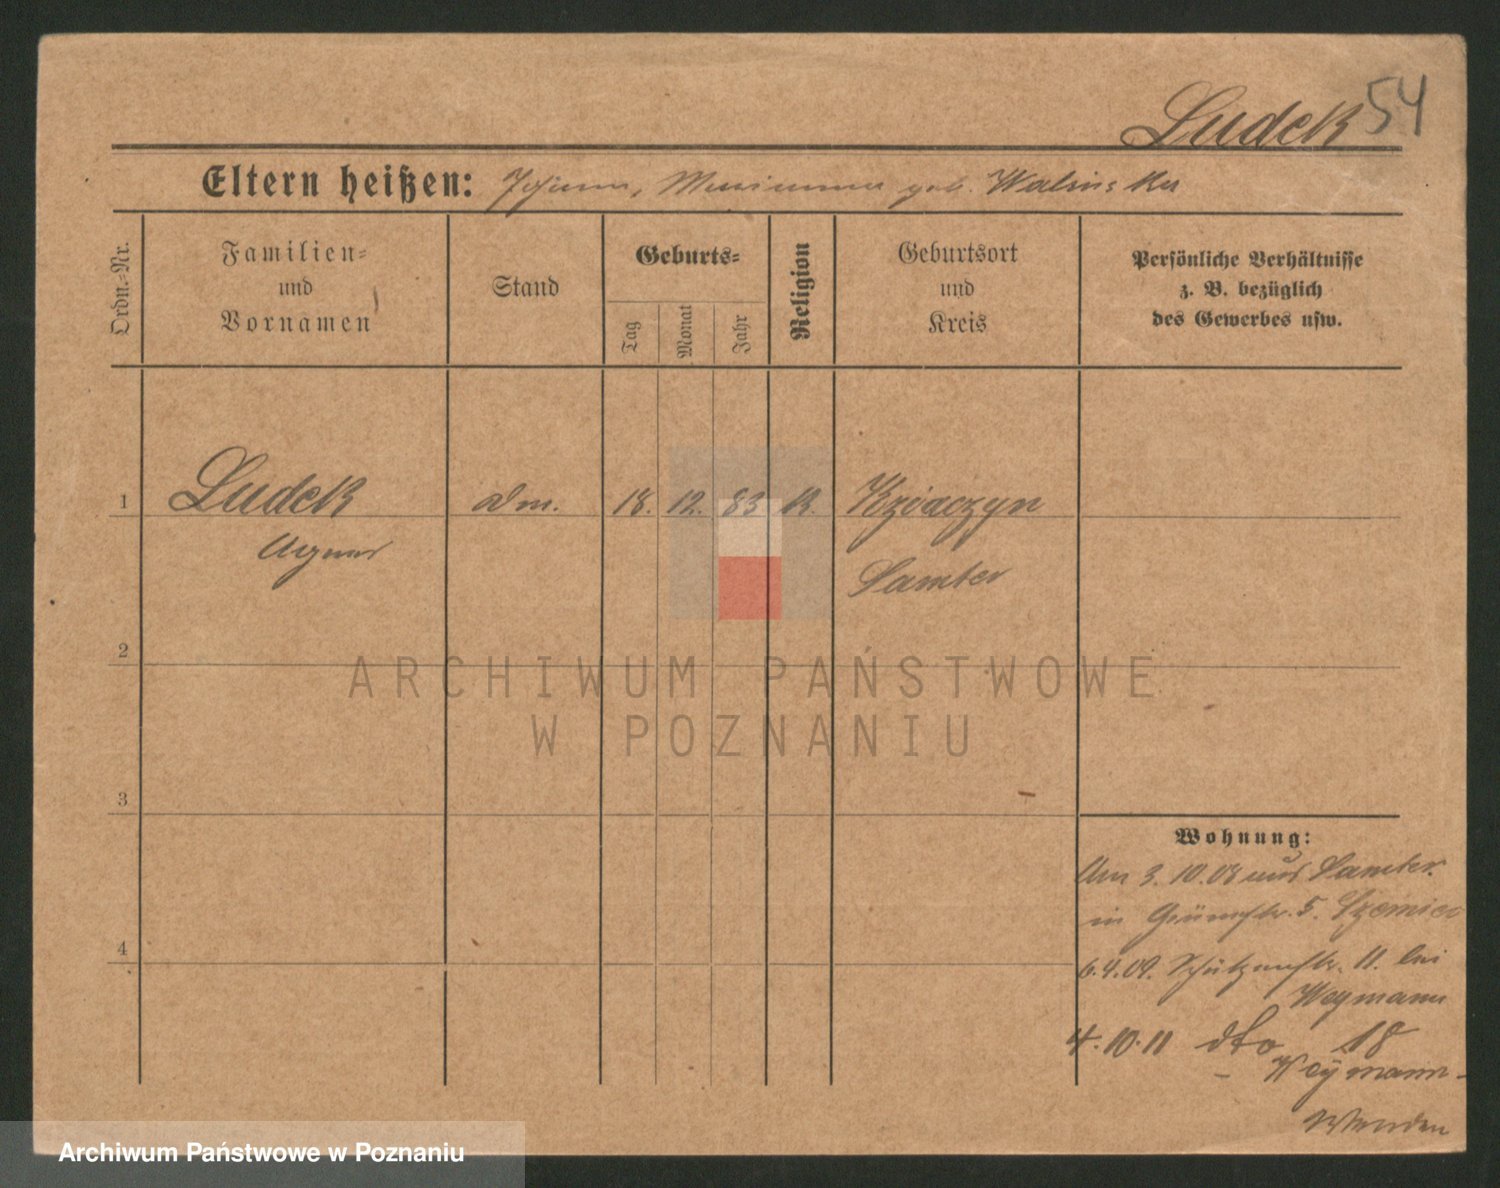 Ludek 54
Eltern heißen: Johann, Marianna geb. Walinska
Ordn.-Nr.
Familien-
und
Vornamen
Stand
Geburts-
Tag
Monat
Jahr
Religion
Geburtsort
und
Kreis
Persönliche Verhältnisse
z. B. bezüglich
des Gewerbes usw.
1 Ludek 18. 12. 83 K.
Agnes
Samter
2
ARCHIWUM PAŃSTWOWE
W POZNANIU
3
Wohnung:
Am 3.10.08 aus Samter.
in 5.
4
6.4.09. Schützenstr. 11. bei
Weymann
4.10.11 dto 18
Weÿmann
Wenden
Archiwum Państwowe w Poznaniu